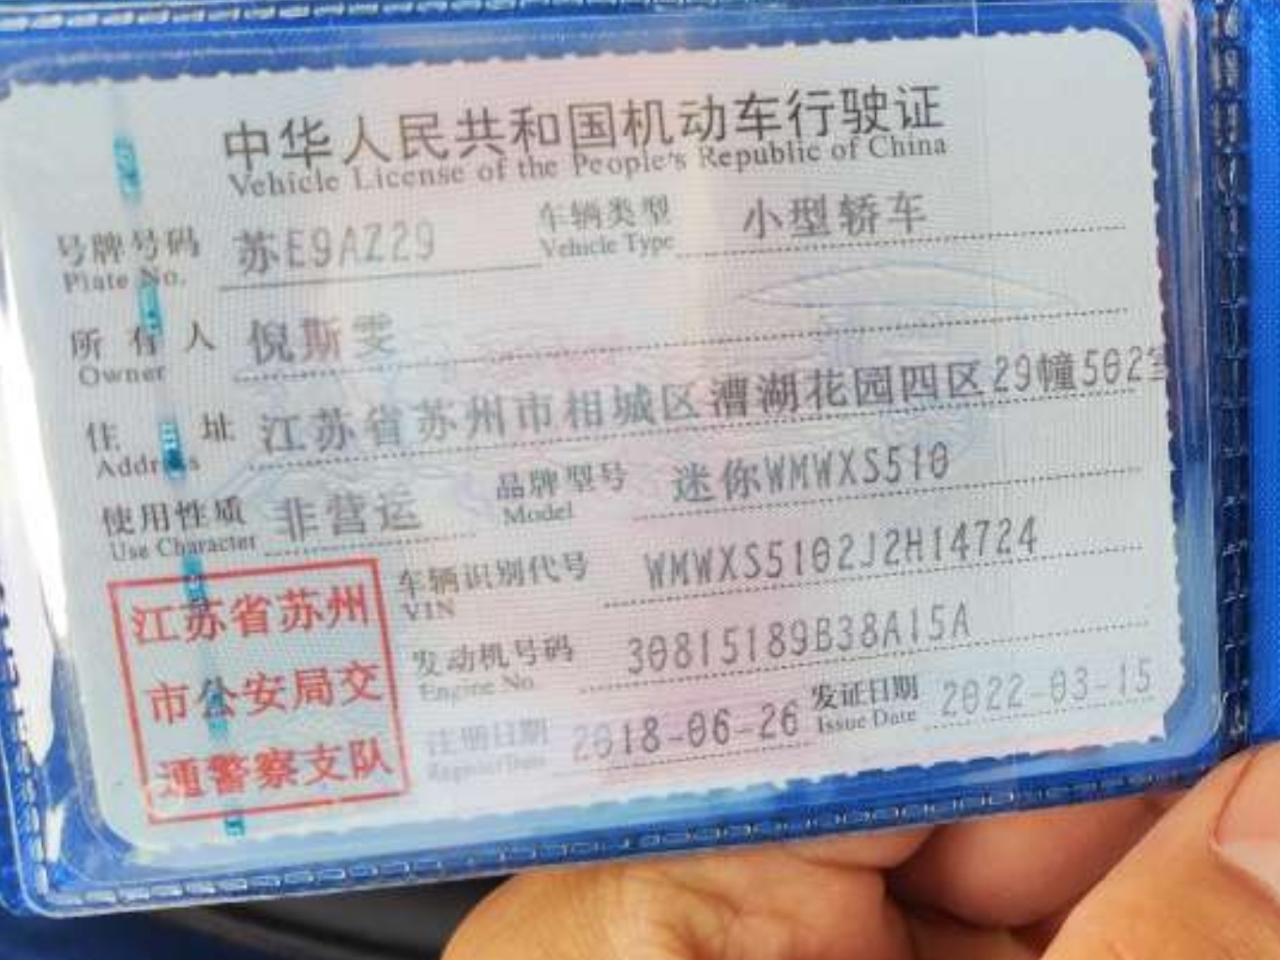 中华人民共和国机动车行驶证
Vehicle License of the People's Republic of China
号牌号码 苏E9AZ29 车辆类型 小型轿车
Plate No. Vehicle Type
所有人 倪斯雯
Owner
住址 江苏省苏州市相城区漕湖花园四区29幢502室
Address
使用性质 非营运 品牌型号 迷你WMWXS510
Use Character Model
车辆识别代号 WMWXS5102J2H14724
VIN
发动机号码 30815189B38A15A
Engine No.
注册日期 2018-06-26 发证日期 2022-03-15
Register Date Issue Date
江苏省苏州
市公安局交
通警察支队